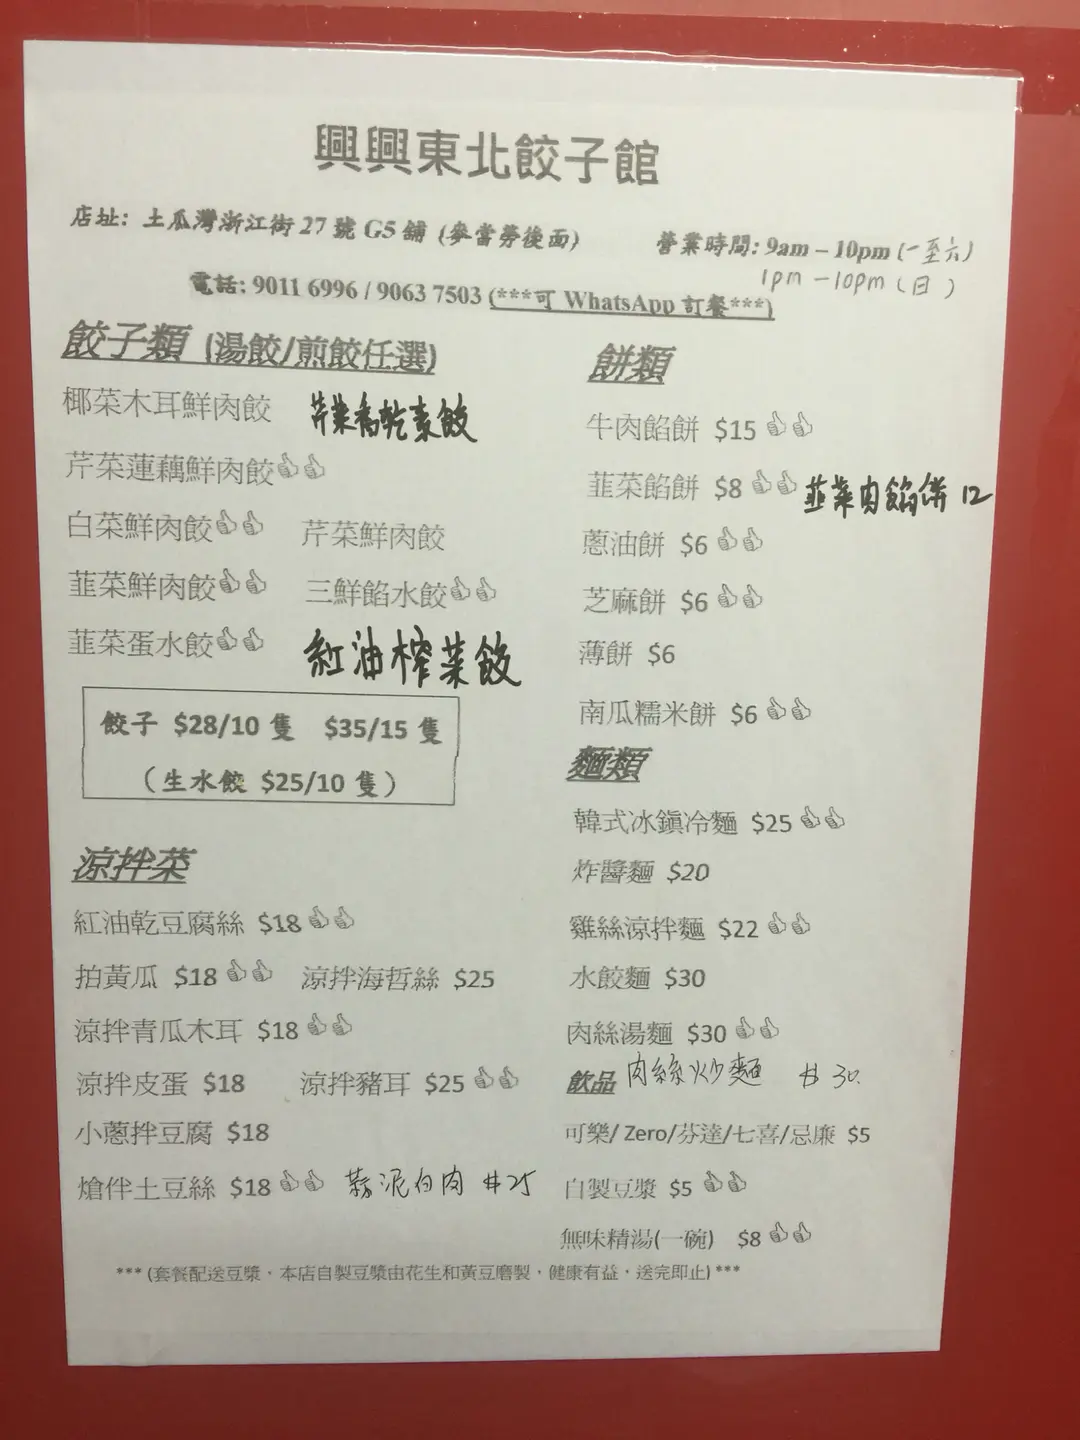 興興東北餃子館
店址: 土瓜灣浙江街 27 號 G5 舖 (麥當勞後面)
營業時間: 9am – 10pm (一至六)
1pm – 10pm (日)
電話: 9011 6996 / 9063 7503 (***可 WhatsApp 訂餐***)
餃子類 (湯餃/煎餃任選)
椰菜木耳鮮肉餃 芹菜香乾素餃
芹菜蓮藕鮮肉餃👍👍
白菜鮮肉餃👍👍 芹菜鮮肉餃
韮菜鮮肉餃👍👍 三鮮餡水餃👍👍
韮菜蛋水餃👍👍 紅油榨菜餃
餃子 $28/10 隻 $35/15 隻
(生水餃 $25/10 隻)
涼拌菜
紅油乾豆腐絲 $18👍👍
拍黃瓜 $18👍👍 涼拌海哲絲 $25
涼拌青瓜木耳 $18👍👍
涼拌皮蛋 $18 涼拌豬耳 $25👍👍
小蔥拌豆腐 $18
熗伴土豆絲 $18👍👍 蒜泥白肉 $25
餅類
牛肉餡餅 $15👍👍
韮菜餡餅 $8👍👍 韮菜肉餡餅 12
蔥油餅 $6👍👍
芝麻餅 $6👍👍
薄餅 $6
南瓜糯米餅 $6👍👍
麵類
韓式冰鎮冷麵 $25👍👍
炸醬麵 $20
雞絲涼拌麵 $22👍👍
水餃麵 $30
肉絲湯麵 $30👍👍
肉絲炒麵 $30.
飲品
可樂/ Zero/芬達/七喜/忌廉 $5
自製豆漿 $5👍👍
無味精湯(一碗) $8👍👍
*** (套餐配送豆漿，本店自製豆漿由花生和黃豆磨製，健康有益，送完即止) ***